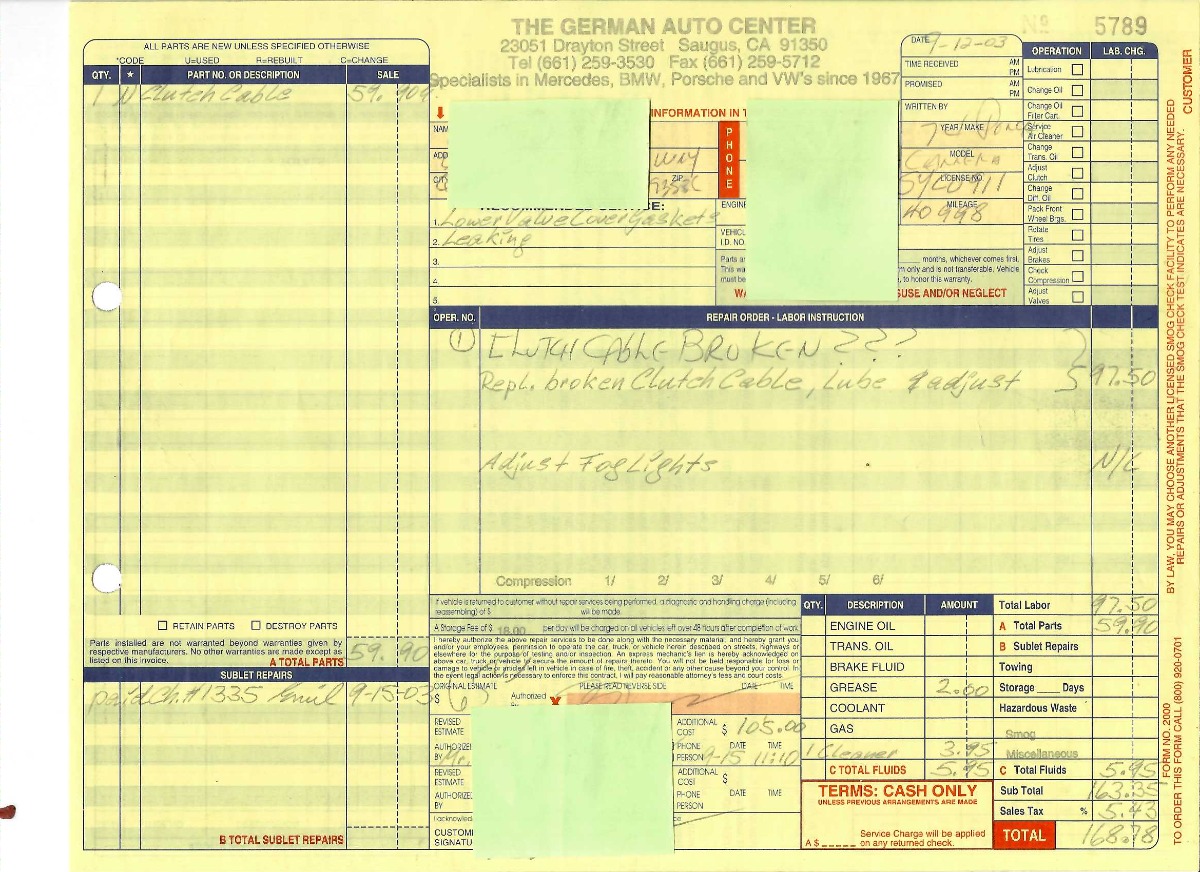 THE GERMAN AUTO CENTER
23051 Drayton Street Saugus, CA 91350
Tel (661) 259-3530 Fax (661) 259-5712
Specialists in Mercedes, BMW, Porsche and VW's since 1967
No 5789
ALL PARTS ARE NEW UNLESS SPECIFIED OTHERWISE
*CODE U=USED R=REBUILT C=CHANGE
QTY. * PART NO. OR DESCRIPTION SALE
1 N Clutch Cable 59.90
RETAIN PARTS DESTROY PARTS
Parts installed are not warranted beyond warranties given by
respective manufacturers. No other warranties are made except as
listed on this invoice.
A TOTAL PARTS 59.90
SUBLET REPAIRS
paid Ch.#1335 9-15-03
B TOTAL SUBLET REPAIRS
INFORMATION IN
WAY
ZIP
PHONE
DATE 9-12-03
TIME RECEIVED AM PM
PROMISED AM PM
WRITTEN BY
YEAR/MAKE
MODEL
LICENSE NO.
MILEAGE
40998
1. Lower Valve Cover Gaskets
2. Leaking
3.
4.
5.
VEHICLE
I.D. NO.
months, whichever comes first.
only and is not transferable. Vehicle
to honor this warranty.
USE AND/OR NEGLECT
OPERATION LAB. CHG.
Lubrication
Change Oil
Change Oil
Filter Cart.
Service
Air Cleaner
Change
Trans. Oil
Adjust
Clutch
Change
Diff. Oil
Pack Front
Wheel Brgs.
Rotate
Tires
Adjust
Brakes
Check
Compression
Adjust
Valves
OPER. NO. REPAIR ORDER - LABOR INSTRUCTION
1 CLUTCH CABLE BROKEN ???
Repl. broken Clutch Cable, Lube & adjust 97.50
Adjust Fog Lights N/C
Compression 1/ 2/ 3/ 4/ 5/ 6/
If vehicle is returned to customer without repair services being performed, a diagnostic and handling charge (including
reassembling) of $ will be made.
A Storage Fee of $ 18.00 per day will be charged on all vehicles left over 48 hours after completion of work.
I hereby authorize the above repair services to be done along with the necessary material, and hereby grant you
and/or your employees, permission to operate the car, truck, or vehicle herein described on streets, highways or
elsewhere for the purpose of testing and/or inspection. An express mechanic's lien is hereby acknowledged on
above car, truck or vehicle to secure the amount of repairs thereto. You will not be held responsible for loss or
damage to vehicle or articles left in vehicle in case of fire, theft, accident or any other cause beyond your control. In
the event legal action is necessary to enforce this contract, I will pay reasonable attorney's fees and court costs.
ORIGINAL ESTIMATE PLEASE READ REVERSE SIDE DATE TIME
$ Authorized By X
REVISED
ESTIMATE
ADDITIONAL
COST $ 105.00
AUTHORIZED
BY Mr.
PHONE DATE TIME
PERSON 9-15 11:10
REVISED
ESTIMATE
ADDITIONAL
COST $
AUTHORIZED
BY
PHONE DATE TIME
PERSON
I acknowled
QTY. DESCRIPTION AMOUNT
ENGINE OIL
TRANS. OIL
BRAKE FLUID
GREASE 2.00
COOLANT
GAS
1 Cleaner 3.95
C TOTAL FLUIDS 5.95
TERMS: CASH ONLY
UNLESS PREVIOUS ARRANGEMENTS ARE MADE
Service Charge will be applied
A $ on any returned check.
Total Labor 97.50
A Total Parts 59.90
B Sublet Repairs
Towing
Storage Days
Hazardous Waste
Smog
Miscellaneous
C Total Fluids 5.95
Sub Total 163.35
Sales Tax % 5.43
TOTAL 168.78
CUSTOMER
BY LAW, YOU MAY CHOOSE ANOTHER LICENSED SMOG CHECK FACILITY TO PERFORM ANY NEEDED
REPAIRS OR ADJUSTMENTS THAT THE SMOG CHECK TEST INDICATES ARE NECESSARY.
FORM NO. 2000
TO ORDER THIS FORM CALL (800) 920-0701